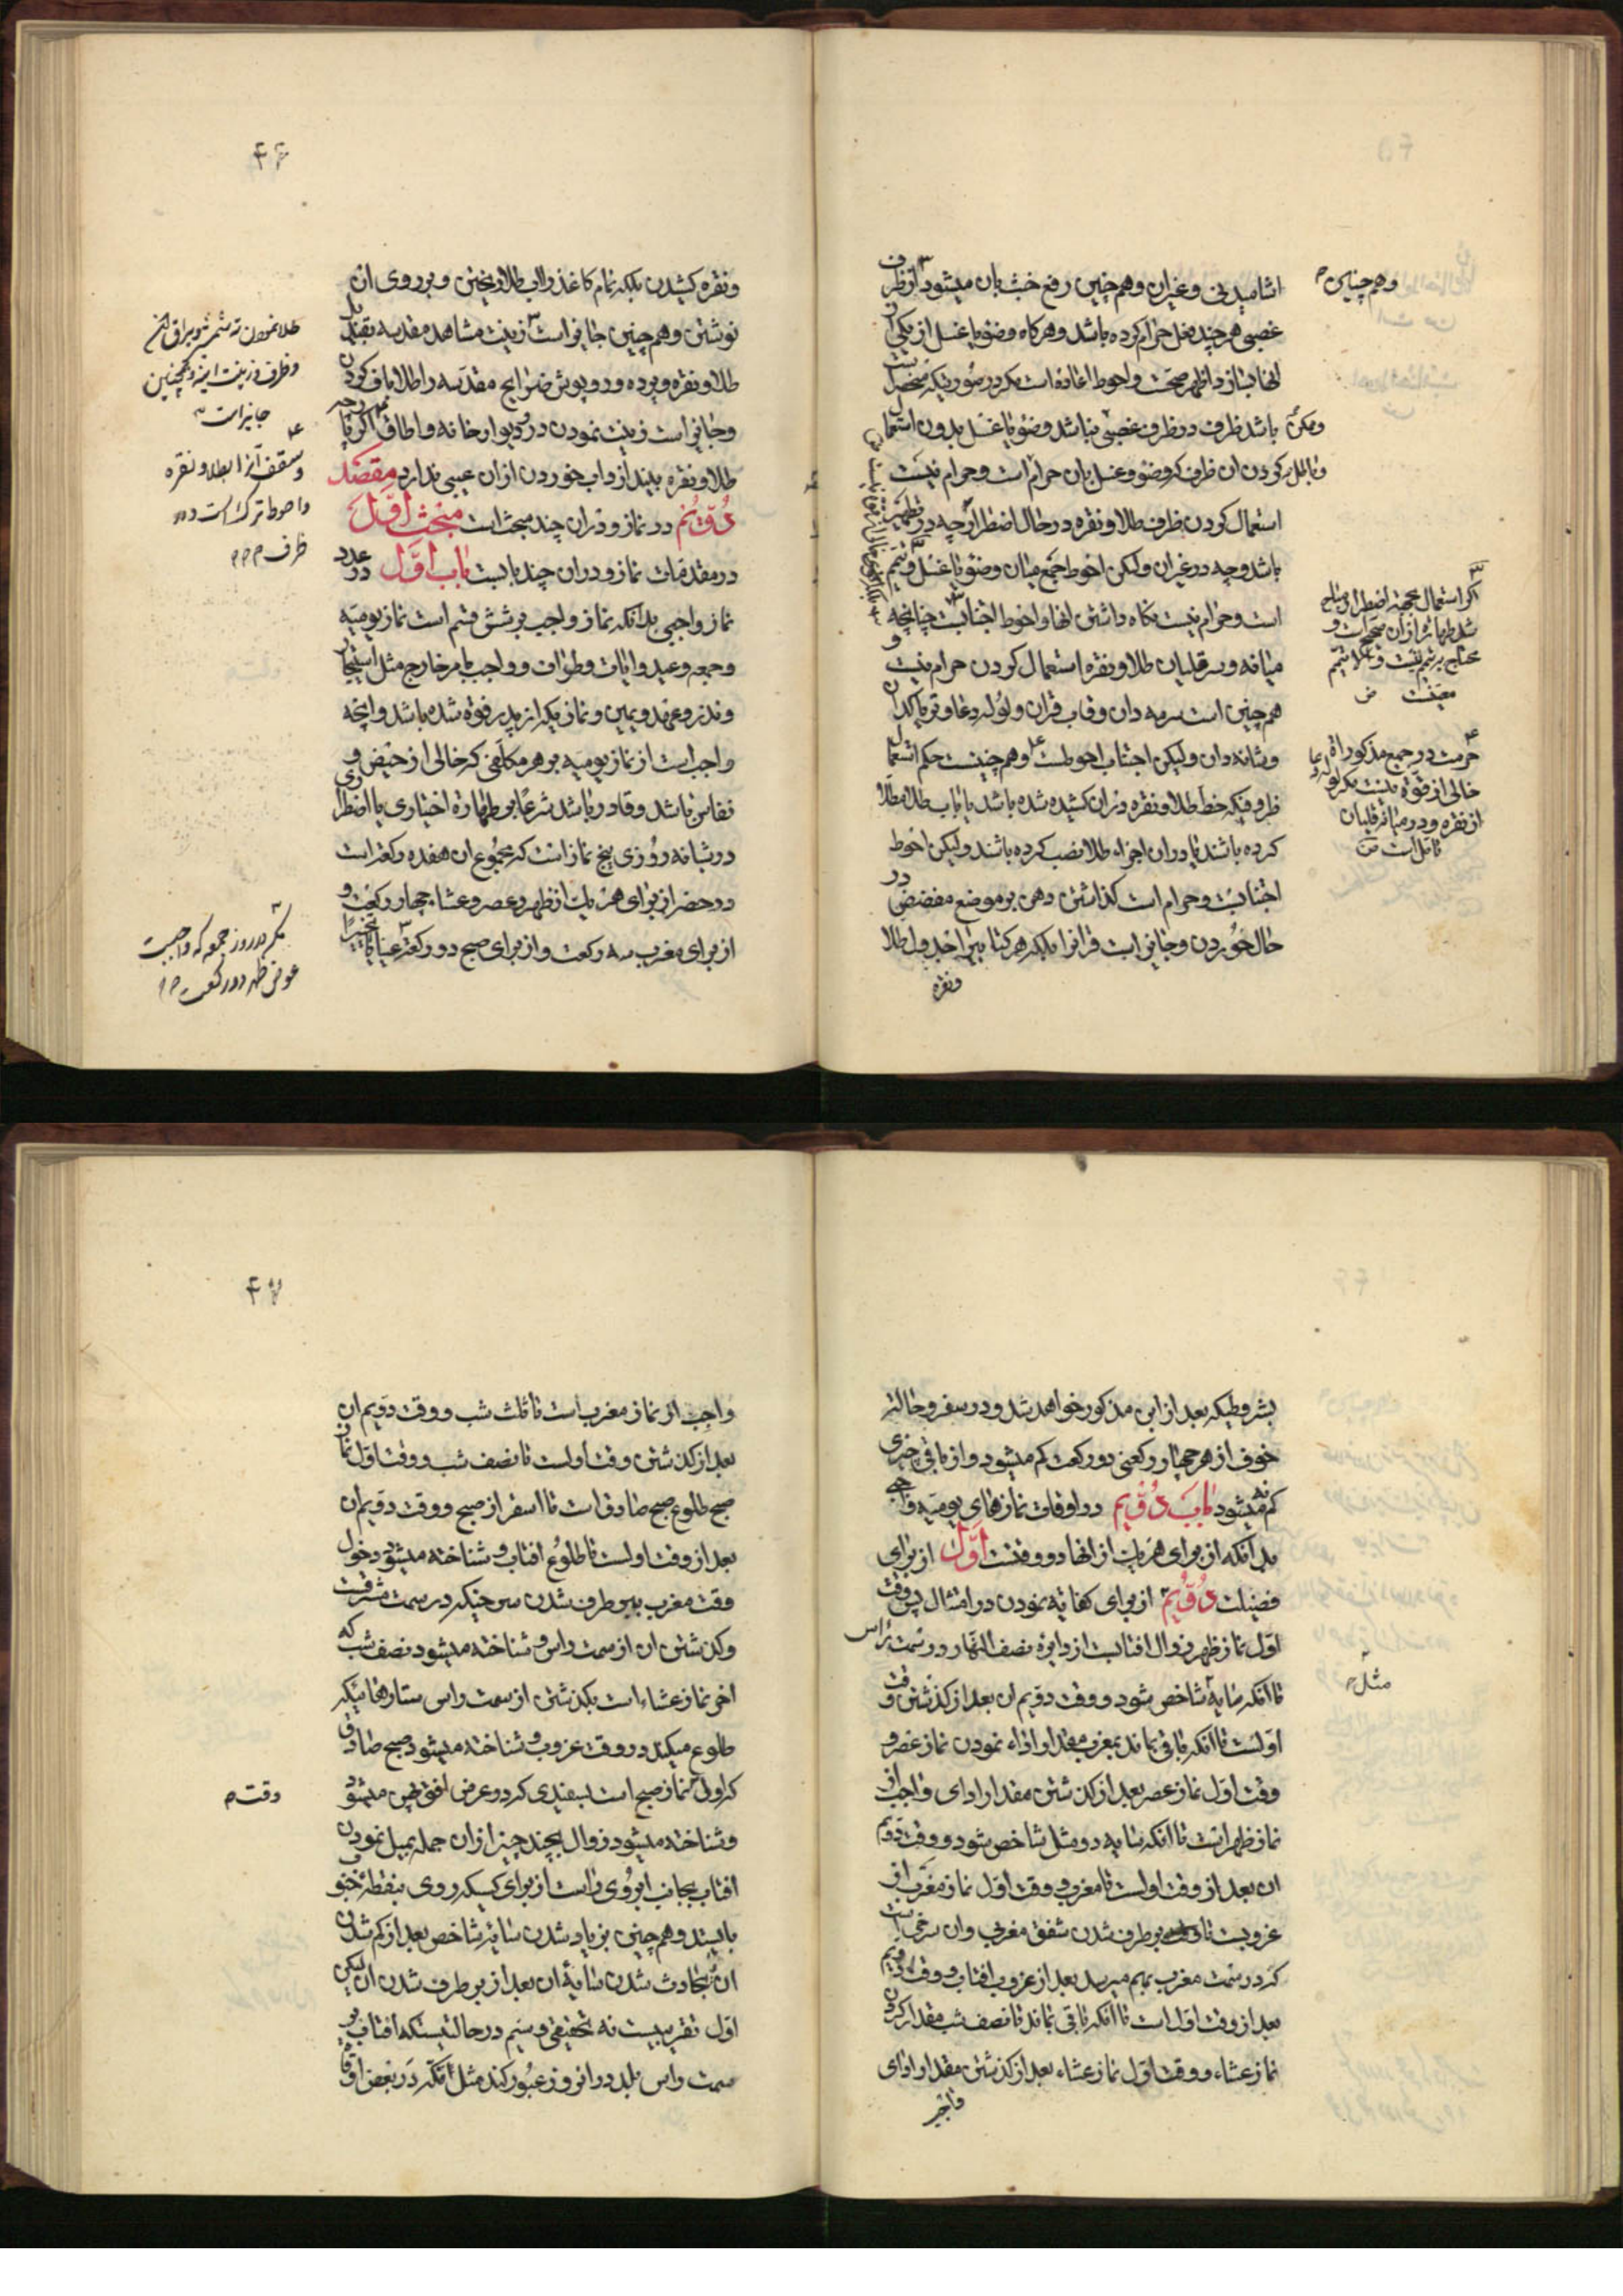 اشامیدنی و غیران وهم چنین رفع خبث بان میشود از ظرف
غصبی هر چند فعل حرام کرده باشد و هرکاه وضو یا غسل از یکی از
انها بسازد اظهر صحت و احوط اعاده است مکر در صورتیکه منحصر
باشد ظرف در ظرف غصبی نباشد وضو یا غسل بدون استعمال
کردن ان ظرف که وضو و غسل بان حرام است و حرام نیست
استعمال کردن ظرف طلا و نقره در حال اضطرار چه در تطهیر
باشد و چه در غیران ولیکن احوط جمع میان وضو یا غسل و تیمم
است و حرام نیست نکاه داشتن انها و احوط اجتنابست چنانچه
میانه و سر قلیان طلا و نقره استعمال کردن حرام نیست و
هم چنین است سرمه دان و قاب قران و لوله دعا و تریاکدان
و شانه دان ولیکن اجتناب احوطست وهم چنینست حکم استعمال
ظروفیکه خط طلا و نقره دران کشیده شده باشد یا باب طلا مطلا
کرده باشند یا دران اجزاء طلا نصب کرده باشند ولیکن احوط
اجتنابست و حرام است کذاشتن دهن بر موضع مفضض در
حال خوردن و جایز است قرانرا بلکه هر کتابیرا جدول طلا
ونقره
وهم چنین
و ممکن
اکر استعمال بجهة اضطرار مباح
شد طهارة ازان صحیح است و
محتاج به تیمم نیست
حرمت در جمیع مذکورات
خالی از قوة نیست مکر لوله دعا
از نقره و در میانه قلیان
تامل است
۴۶
ونقره کشیدن بلکه تمام کاغذ را اب طلا ریختن و بر روی ان
نوشتن وهم چنین جایز است زینت مشاهد مقدسه بقندیل
طلا و نقره و پرده و روپوش ضرایح مقدسه را طلا باف کردن
و جایز است زینت نمودن در و دیوار خانه و اطاق اکرچه با
طلا و نقره بیندازد اب خوردن ازان عیبی ندارد مقصد
دویم در نماز و دران چند مبحث است مبحث اول
در مقدمات نماز و دران چند بابست باب اول در عدد
نماز واجبی بدانکه نماز واجب بر شش قسم است نماز یومیه
و جمعه و عید و ایات و طواف و واجب بامر خارج مثل استیجار
و نذر و عهد و یمین و نمازیکه از پدر فوة شده باشد و انچه
واجب است از نماز یومیه بر هر مکلفی که خالی از حیض و
نفاس باشد و قادر باشد شرعا بر طهارة اختیاری یا اضطراری
در شبانه روزی پنج نماز است که مجموع ان هفده رکعة است
در حضر از برای هر یک از ظهر و عصر و عشا چهار رکعت و
از برای مغرب سه رکعت و از برای صبح دو رکعة عینا یا تخییرا
جایز است
و سقف انرا بطلا و نقره
و احوط ترک است در
ظرف
مکر در روز جمعه که واجبست
عوض ظهر دو رکعت
بشروطیکه بعد ازاین مذکور خواهد شد و در سفر و حالت
خوف از هر چهار رکعتی دو رکعت کم میشود و از باقی چیزی
کم نمیشود باب دویم در اوقات نمازهای یومیه واجبی
بدانکه از برای هر یک از انها دو وقتست اول از برای
فضیلت دویم از برای کفایة نمودن در امتثال پس وقت
اول نماز ظهر زوال افتابست از دایره نصف النهار و در سمت راس
تا انکه سایه شاخص شود و وقت دویم ان بعد از کذشتن وقت
اولست تا انکه باقی بماند بمغرب مقدار اداء نمودن نماز عصر و
وقت اول نماز عصر بعد از کذشتن مقدار ادای واجب از
نماز ظهر است تا انکه سایه دو مثل شاخص شود و وقت دویم
ان بعد از وقت اولست تا مغرب و وقت اول نماز مغرب از
غروبست تا برطرف شدن شفق مغربی وان سرخی است
که در سمت مغرب بهم میرسد بعد از غروب افتاب و وقت دویم
بعد از وقت اول است تا انکه باقی بماند تا نصف شب مقدار کردن
نماز عشاء و وقت اول نماز عشاء بعد از کذشتن مقدار ادای
واجب
مثل
۴۷
واجب از نماز مغرب است تا ثلث شب و وقت دویم ان
بعد از کذشتن وقت اولست تا نصف شب و وقت اول نماز
صبح طلوع صبح صادق است تا اسفرار صبح و وقت دویم ان
بعد از وقت اولست تا طلوع افتاب و شناخته میشود دخول
وقت مغرب ببر طرف شدن سرخیکه در سمت مشرقست
و کذشتن ان از سمت راس و شناخته میشود نصف شب که
اخر نماز عشاء است بکذشتن از سمت راس ستارهائیکه
طلوع میکند در وقت غروب و شناخته میشود صبح صادق
که اول نماز صبح است بسفیدی که در عرض افق پهن میشود
و شناخته میشود زوال بچند چیز ازان جمله بمیل نمودن
افتاب بجانب ابروی راست از برای کسیکه روی بنقطه جنوب
بایستد وهم چنین بزیاد شدن سایه شاخص بعد از کم شدن
ان یا بحادث شدن سایه ان بعد از بر طرف شدن ان لیکن
اول تقریبیست نه تحقیقی و سیم در حالتیستکه افتاب بر
سمت راس بلد دران روز عبور کند مثل انکه در بعض اوقات
وقت